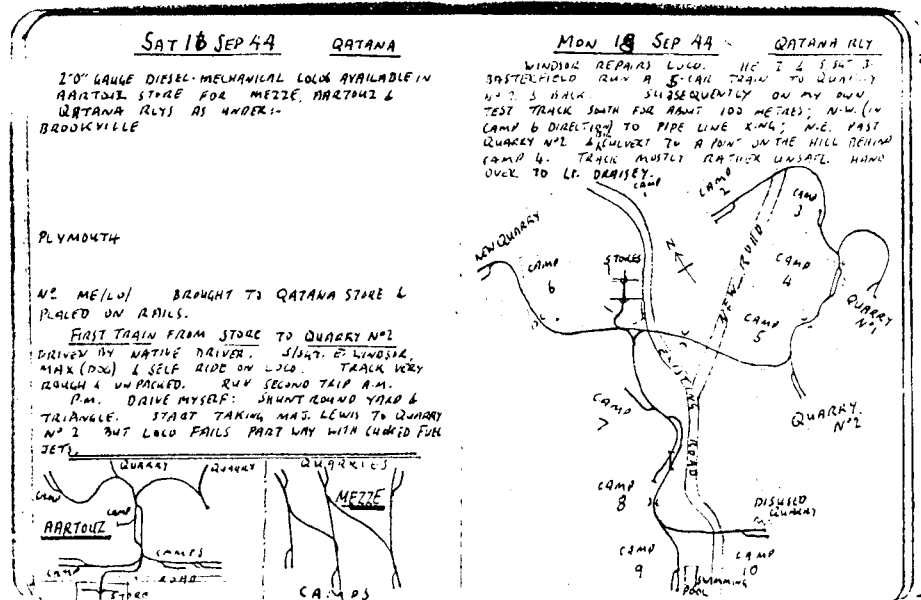 SAT 16 SEP 44 QATANA
2'0" GAUGE DIESEL-MECHANICAL LOCOS AVAILABLE IN
AARTOUZ STORE FOR MEZZE, AARTOUZ &
QATANA RLYS AS UNDER:-
BROOKVILLE
PLYMOUTH
No ME/LO/ BROUGHT TO QATANA STORE &
PLACED ON RAILS.
FIRST TRAIN FROM STORE TO QUARRY No2
DRIVEN BY NATIVE DRIVER. S/SGT. E. WINDSOR,
MAX (DOG) & SELF RIDE ON LOCO. TRACK VERY
ROUGH & UNPACKED. RUN SECOND TRIP A.M.
P.M. DRIVE MYSELF: SHUNT ROUND YARD &
TRIANGLE. START TAKING MAJ. LEWIS TO QUARRY
No 2 BUT LOCO FAILS PART WAY WITH CHOKED FUEL
JETS.
QUARRY QUARRY
CAMP
CAMP
AARTOUZ
CAMP CAMPS
ROAD
STORE
QUARRIES
MEZZE
CAMPS
MON 18 SEP 44 QATANA RLY
WINDSOR REPAIRS LOCO. HE I & S/SGT J.
BASTERFIELD RUN A 5-CAR TRAIN TO QUARRY
No 2 & BACK. SUBSEQUENTLY ON MY OWN
TEST TRACK SOUTH FOR ABOUT 100 METRES; N.W. (IN
CAMP 6 DIRECTION) TO PIPE LINE XING; N.E. PAST
QUARRY No2 & CULVERT TO A POINT ON THE HILL BEHIND
CAMP 4. TRACK MOSTLY RATHER UNSAFE. HAND
OVER TO LT. DRAISEY.
CAMP 1
CAMP 2
CAMP 3
NEW QUARRY
CAMP 6
STORES
N
NEW ROAD
CAMP 4
QUARRY No1
CAMP 5
EXISTING ROAD
QUARRY No2
CAMP 7
CAMP 8
DISUSED QUARRY
CAMP 9
CAMP 10
SWIMMING POOL